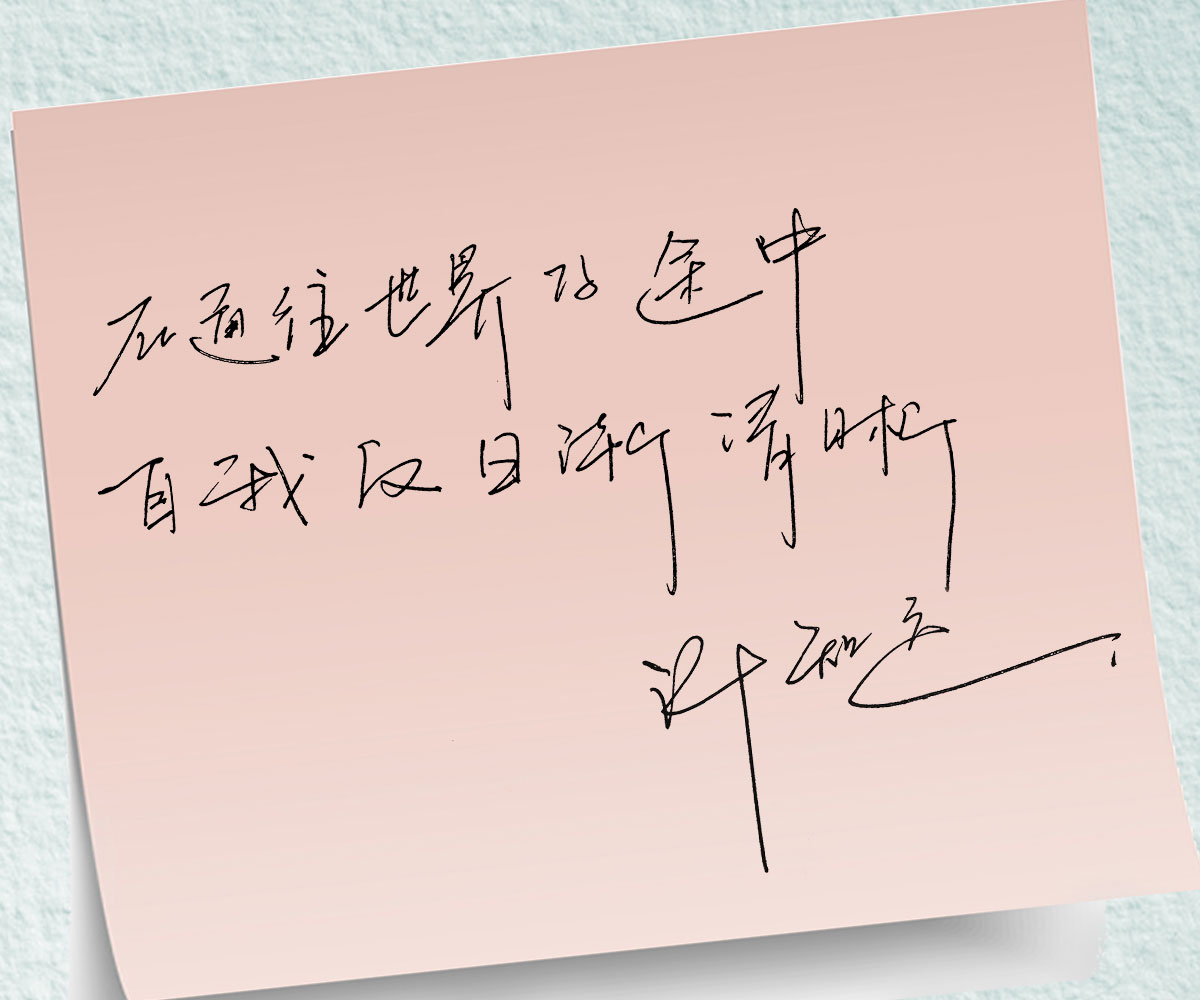 在通往世界的途中
自我反日渐清晰
许知远